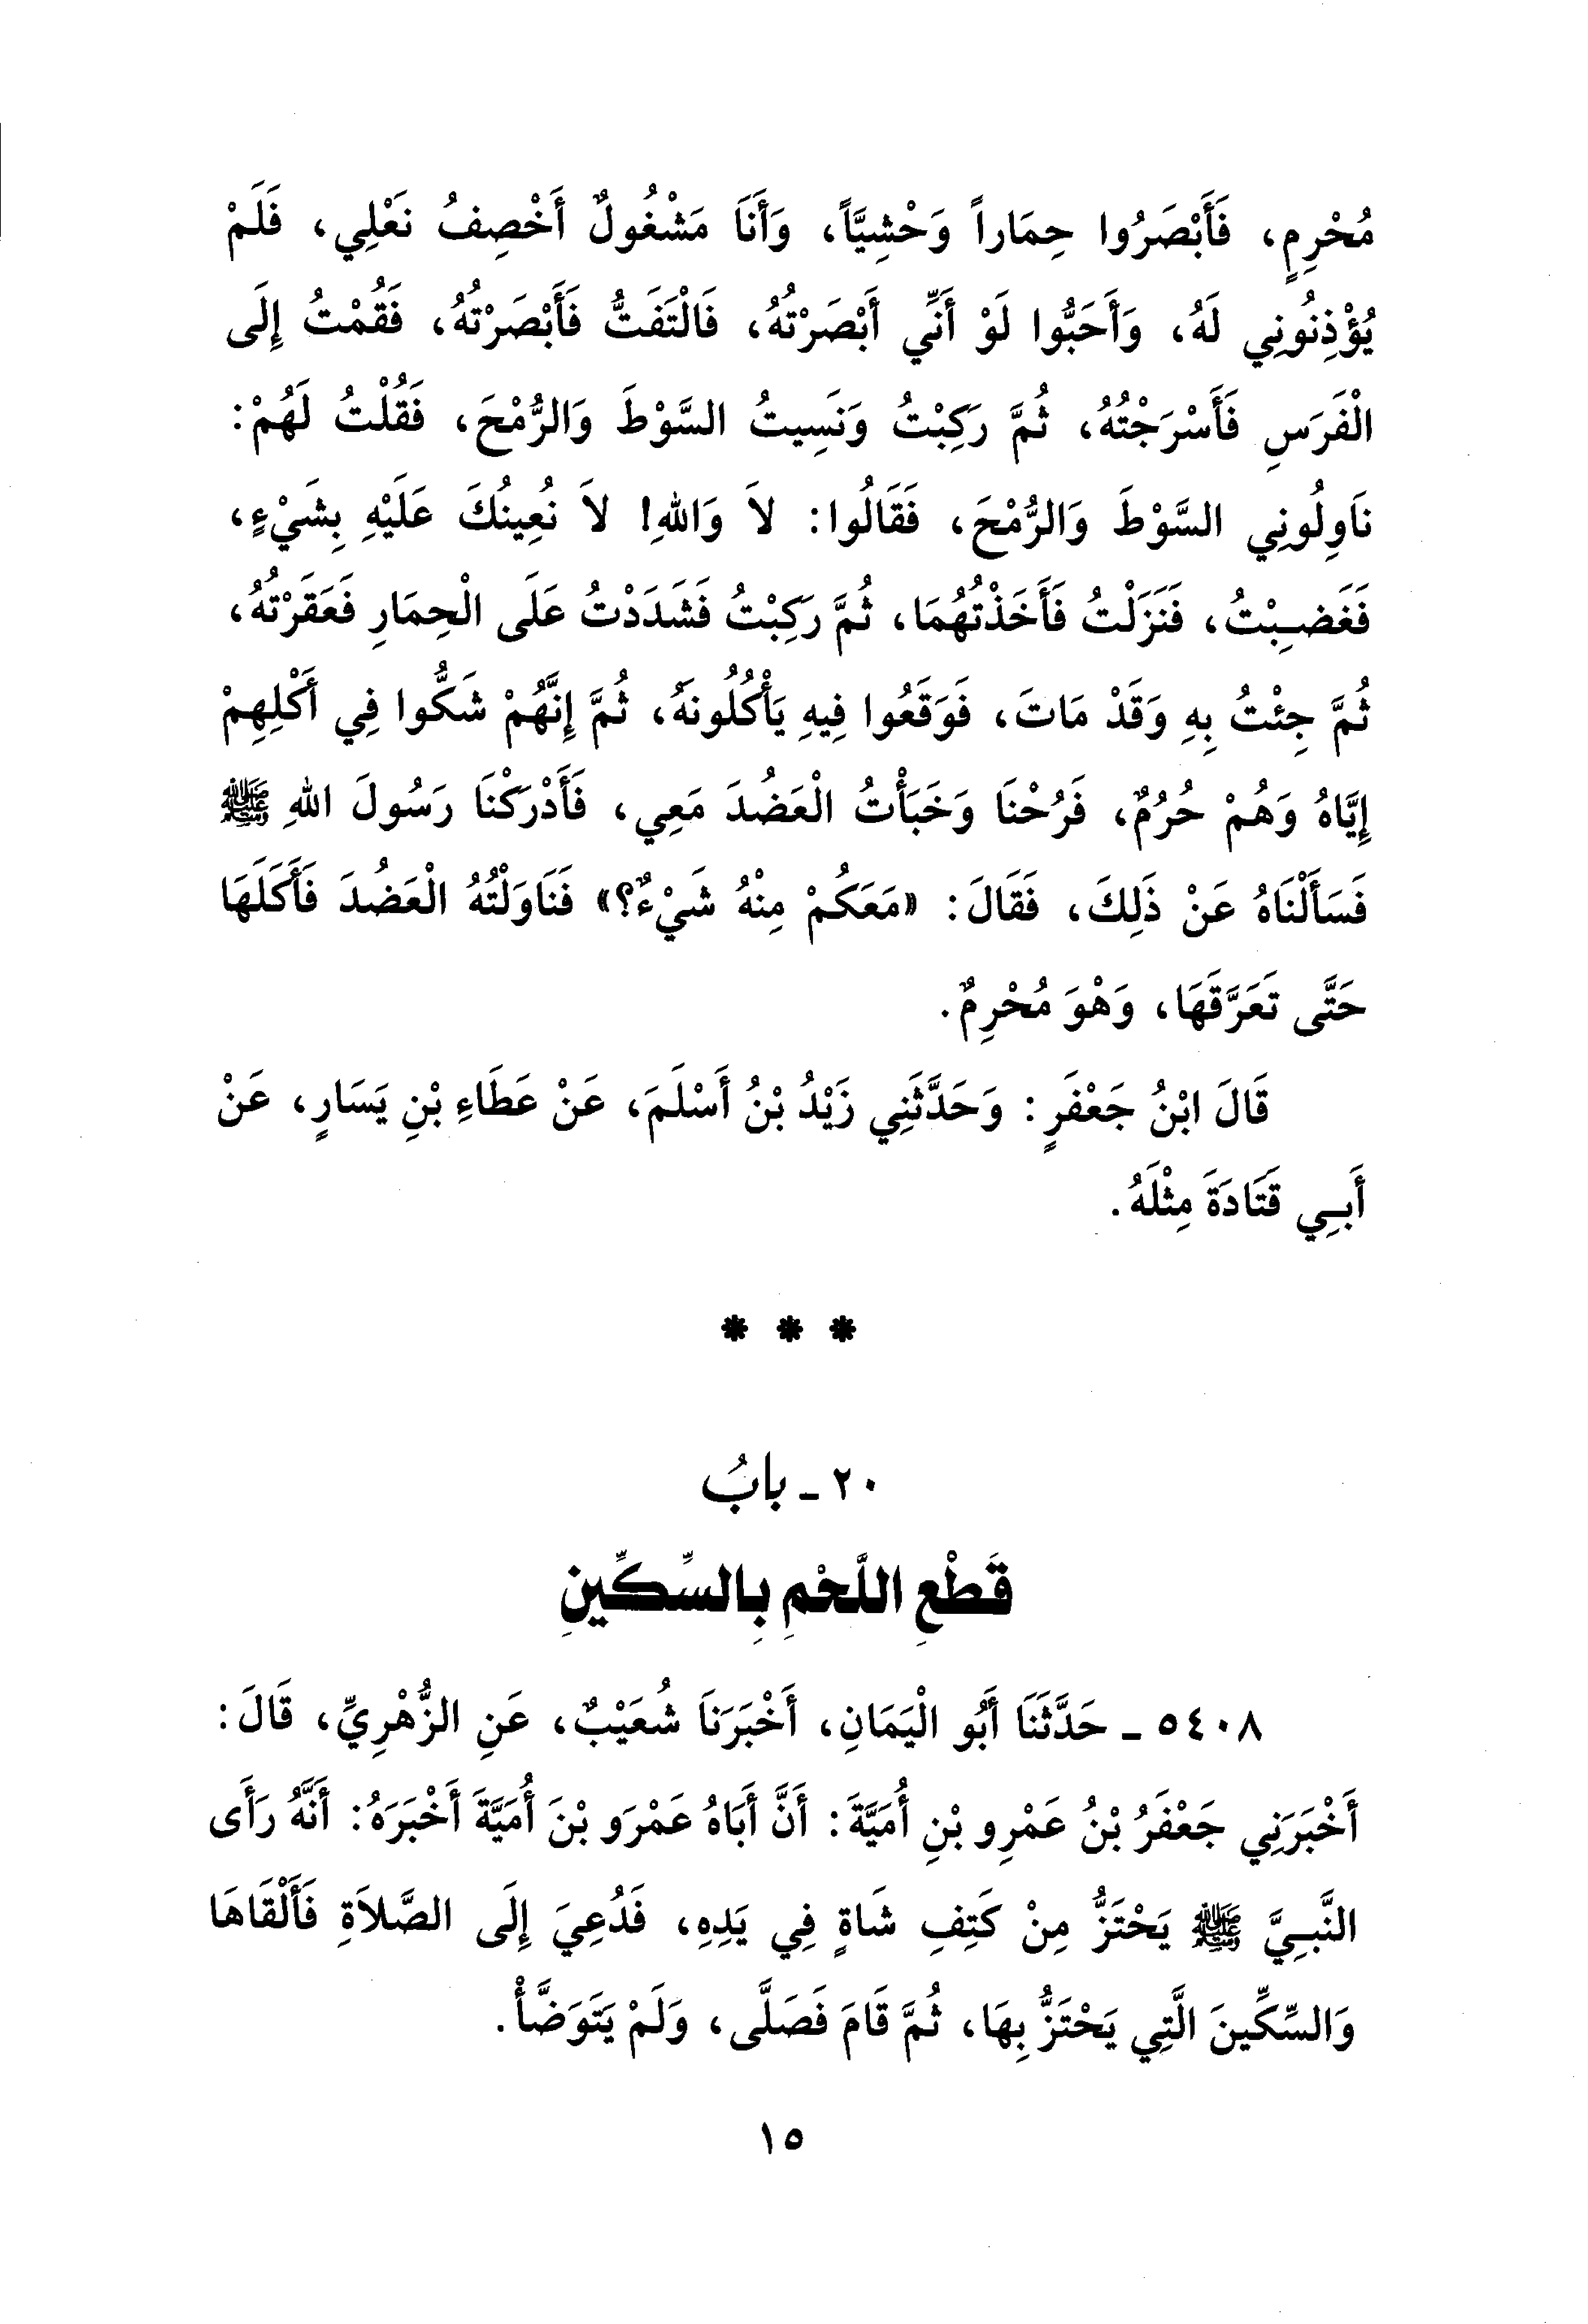 مُحْرِمٍ، فَأَبْصَرُوا حِمَاراً وَحْشِيَّاً، وَأَنَا مَشْغُولٌ أَخْصِفُ نَعْلِي، فَلَمْ
يُؤْذِنُونِي لَهُ، وَأَحَبُّوا لَوْ أَنِّي أَبْصَرْتُهُ، فَالْتَفَتُّ فَأَبْصَرْتُهُ، فَقُمْتُ إِلَى
الْفَرَسِ فَأَسْرَجْتُهُ، ثُمَّ رَكِبْتُ وَنَسِيتُ السَّوْطَ وَالرُّمْحَ، فَقُلْتُ لَهُمْ:
نَاوِلُونِي السَّوْطَ وَالرُّمْحَ، فَقَالُوا: لاَ وَاللهِ! لاَ نُعِينُكَ عَلَيْهِ بِشَيْءٍ،
فَغَضِبْتُ، فَنَزَلْتُ فَأَخَذْتُهُمَا، ثُمَّ رَكِبْتُ فَشَدَدْتُ عَلَى الْحِمَارِ فَعَقَرْتُهُ،
ثُمَّ جِئْتُ بِهِ وَقَدْ مَاتَ، فَوَقَعُوا فِيهِ يَأْكُلُونَهُ، ثُمَّ إِنَّهُمْ شَكُّوا فِي أَكْلِهِمْ
إِيَّاهُ وَهُمْ حُرُمٌ، فَرُحْنَا وَخَبَأْتُ الْعَضُدَ مَعِي، فَأَدْرَكْنَا رَسُولَ اللهِ ﷺ
فَسَأَلْنَاهُ عَنْ ذَلِكَ، فَقَالَ: «مَعَكُمْ مِنْهُ شَيْءٌ؟» فَنَاوَلْتُهُ الْعَضُدَ فَأَكَلَهَا
حَتَّى تَعَرَّقَهَا، وَهْوَ مُحْرِمٌ.
قَالَ ابْنُ جَعْفَرٍ: وَحَدَّثَنِي زَيْدُ بْنُ أَسْلَمَ، عَنْ عَطَاءِ بْنِ يَسَارٍ، عَنْ
أَبِي قَتَادَةَ مِثْلَهُ.
* * *
٢٠ - بابُ
قَطْعِ اللَّحْمِ بِالسِّكِّينِ
٥٤٠٨ - حَدَّثَنَا أَبُو الْيَمَانِ، أَخْبَرَنَا شُعَيْبٌ، عَنِ الزُّهْرِيِّ، قَالَ:
أَخْبَرَنِي جَعْفَرُ بْنُ عَمْرِو بْنِ أُمَيَّةَ: أَنَّ أَبَاهُ عَمْرَو بْنَ أُمَيَّةَ أَخْبَرَهُ: أَنَّهُ رَأَى
النَّبِيَّ ﷺ يَحْتَزُّ مِنْ كَتِفِ شَاةٍ فِي يَدِهِ، فَدُعِيَ إِلَى الصَّلاَةِ فَأَلْقَاهَا
وَالسِّكِّينَ الَّتِي يَحْتَزُّ بِهَا، ثُمَّ قَامَ فَصَلَّى، وَلَمْ يَتَوَضَّأْ.
١٥